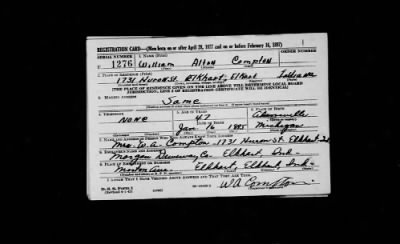 REGISTRATION CARD—(Men born on or after April 28, 1877 and on or before February 16, 1897)
SERIAL NUMBER 1. NAME (Print) ORDER NUMBER
U 1276 William Allon Compton
2. PLACE OF RESIDENCE (Print)
1731 Huron St. Elkhart, Elkhart Indiana
[THE PLACE OF RESIDENCE GIVEN ON THE LINE ABOVE WILL DETERMINE LOCAL BOARD
JURISDICTION; LINE 2 OF REGISTRATION CERTIFICATE WILL BE IDENTICAL]
3. MAILING ADDRESS
Same
4. TELEPHONE 5. AGE IN YEARS 6. PLACE OF BIRTH
None 47
DATE OF BIRTH
Jan. 16 1885 Michigan
7. NAME AND ADDRESS OF PERSON WHO WILL ALWAYS KNOW YOUR ADDRESS
Mrs. W.A. Compton - 1731 Huron St. Elkhart Ind
8. EMPLOYER'S NAME AND ADDRESS
Co. Elkhart, Ind.
9. PLACE OF EMPLOYMENT OR BUSINESS
Ave. Elkhart, Elkhart, Ind.
I AFFIRM THAT I HAVE VERIFIED ABOVE ANSWERS AND THAT THEY ARE TRUE.
D. S. S. Form 1
W A Compton